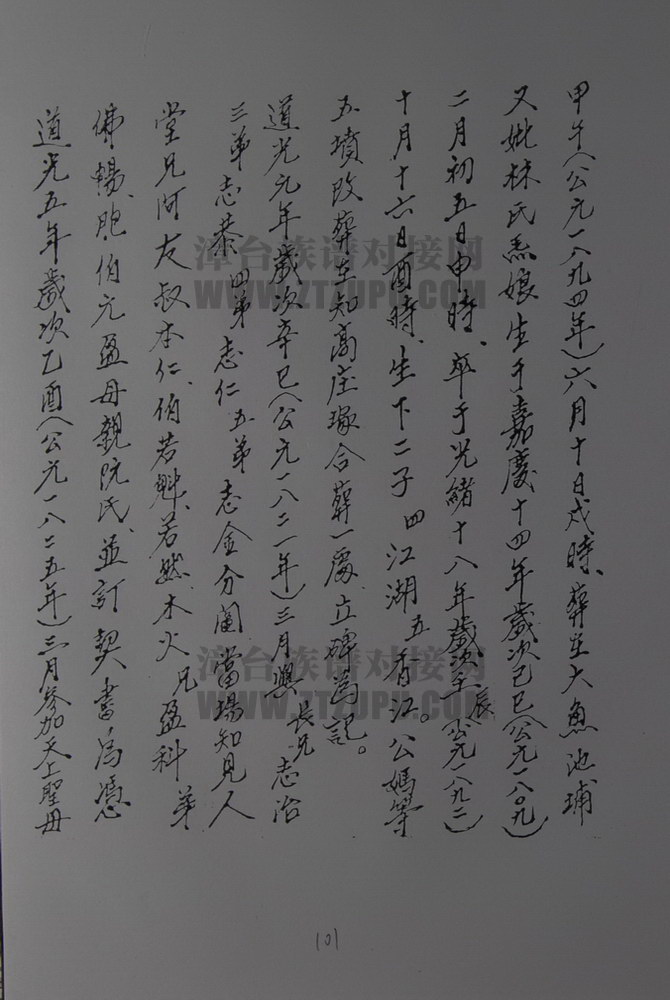 甲午(公元一八九四年)六月十日戌時、葬在大魚池埔
又妣林氏𤆬娘生于嘉慶十四年歲次己巳(公元一八〇九)
二月初五日申時、卒于光緒十八年歲次壬辰(公元一八九二)
十月十六日酉時、生下二子 四江湖 五香江。公媽等
五墳改葬在知高庄㙇合葬一處立碑為記。
道光元年歲次辛巳(公元一八二一年)三月與長兄志治
三弟志恭 四弟志仁 五弟志金分鬮當場知見人
堂兄阿友叔本仁、伯若魁、若然木火兄盈科 弟
佛暢、胞伯元盈母親阮氏、並訂契書為憑
道光五年歲次乙酉(公元一八二五年)三月參加天上聖母
101
漳台族谱对接网
WWW.ZTZUPU.COM
漳台族谱对接网
WWW.ZTZUPU.COM